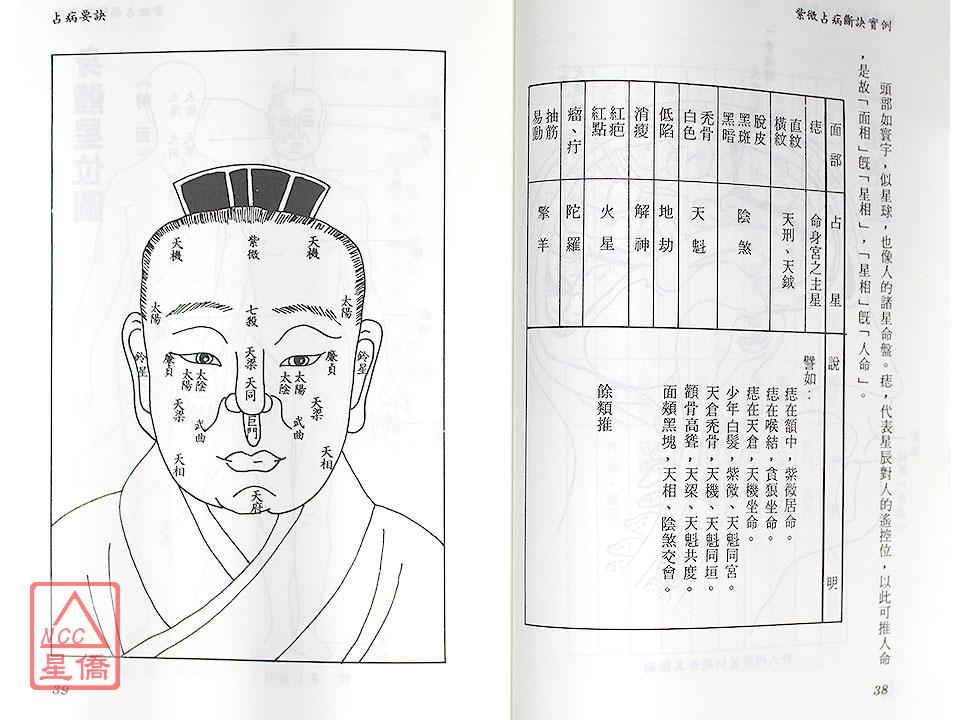 紫微占病斷訣實例
頭部如寰宇，似星球，也像人的諸星命盤。痣，代表星辰對人的遙控位，以此可推人命
，是故「面相」既「星相」，「星相」既「人命」。
面部
占星
說明
痣
命身宮之主星
直紋
橫紋
天刑、天鉞
脫皮
黑斑
黑暗
陰煞
禿骨
白色
天魁
低陷
地劫
消瘦
解神
紅疤
紅點
火星
瘤、疔
陀羅
抽筋
易動
擎羊
譬如：
痣在額中，紫微居命。
痣在喉結，貪狼坐命。
痣在天倉，天機坐命。
少年白髮，紫微、天魁同宮。
天倉禿骨，天機、天魁同垣。
顴骨高聳，天梁、天魁共度。
面頰黑塊，天相、陰煞交會。
餘類推
38
占病要訣
天機
紫微
天機
太陽
七殺
太陽
鈴星
廉貞
太陰
太陽
天梁
天同
太陽
太陰
廉貞
鈴星
天梁
武曲
巨門
武曲
天梁
天相
天相
天府
NCC
星僑
39
身體星位圖